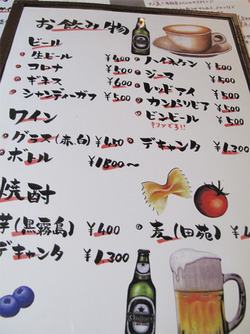 お飲み物
ビール
・生ビール ¥400
・コロナ ¥500
・ギネス ¥600
・シャンディーガフ ¥500
・ハイネケン ¥500
・ジーマ ¥500
・レッドアイ ¥500
・カンパリビア ¥500
・ビンビール ¥500
ワイン
・グラス(赤白) ¥450
・デキャンタ ¥1,300
・ボトル ¥1800〜
焼酎
芋(黒霧島) ¥400
デキャンタ ¥1,300
・麦(田苑) ¥